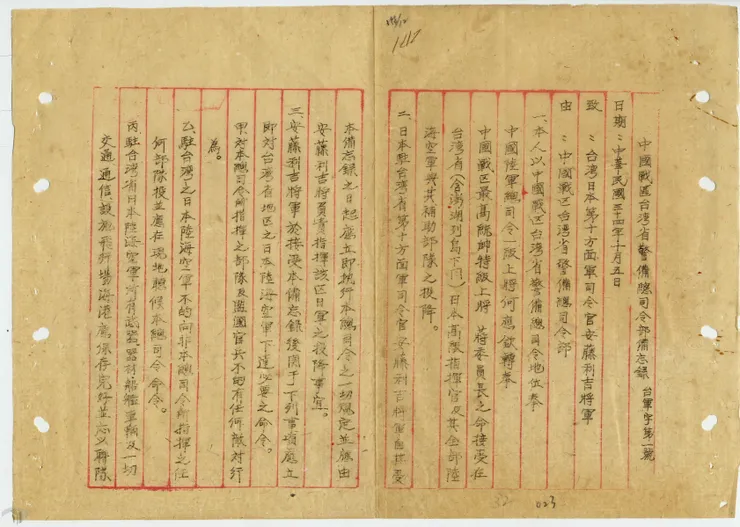 中國戰區台湾省警備總司令部備忘錄 台軍字第一號
日期：中華民國三十四年十月五日
致：台湾日本第十方面軍司令官安藤利吉將軍
由：中國戰区台湾省警備總司令部
一、本人以中國戰区台湾省警備總司令地位奉
中國陸軍總司令一級上將何應欽轉奉
中國戰区最高統帥特級上將 蔣委員長之命接受在
台湾省(含澎湖列島下同)日本高級指揮官及其全部陸
海空軍與其補助部隊之投降。
二、日本駐台湾省第十方面軍司令官安藤利吉將軍自其受
本備忘錄之日起應立即執行本總司令之一切規定並應由
安藤利吉將軍負責指揮該区日軍之投降事宜。
三、安藤利吉將軍於接受本備忘錄後関于下列事項應立
即対台湾省地区之日本陸海空軍下達必要之命令。
甲、対本總司令所指揮之部隊及盟國官兵不的有任何敵対行
為。
乙、駐台湾之日本陸海空軍不的向非本總司令所指揮之任
何部隊投降並應在現地聽候本總司令命令。
丙、駐台湾省日本陸海空軍所有武器器材船艦車輛及一切
交通通信設施飛行場海港應保存完好並忘以聯隊
1212
023